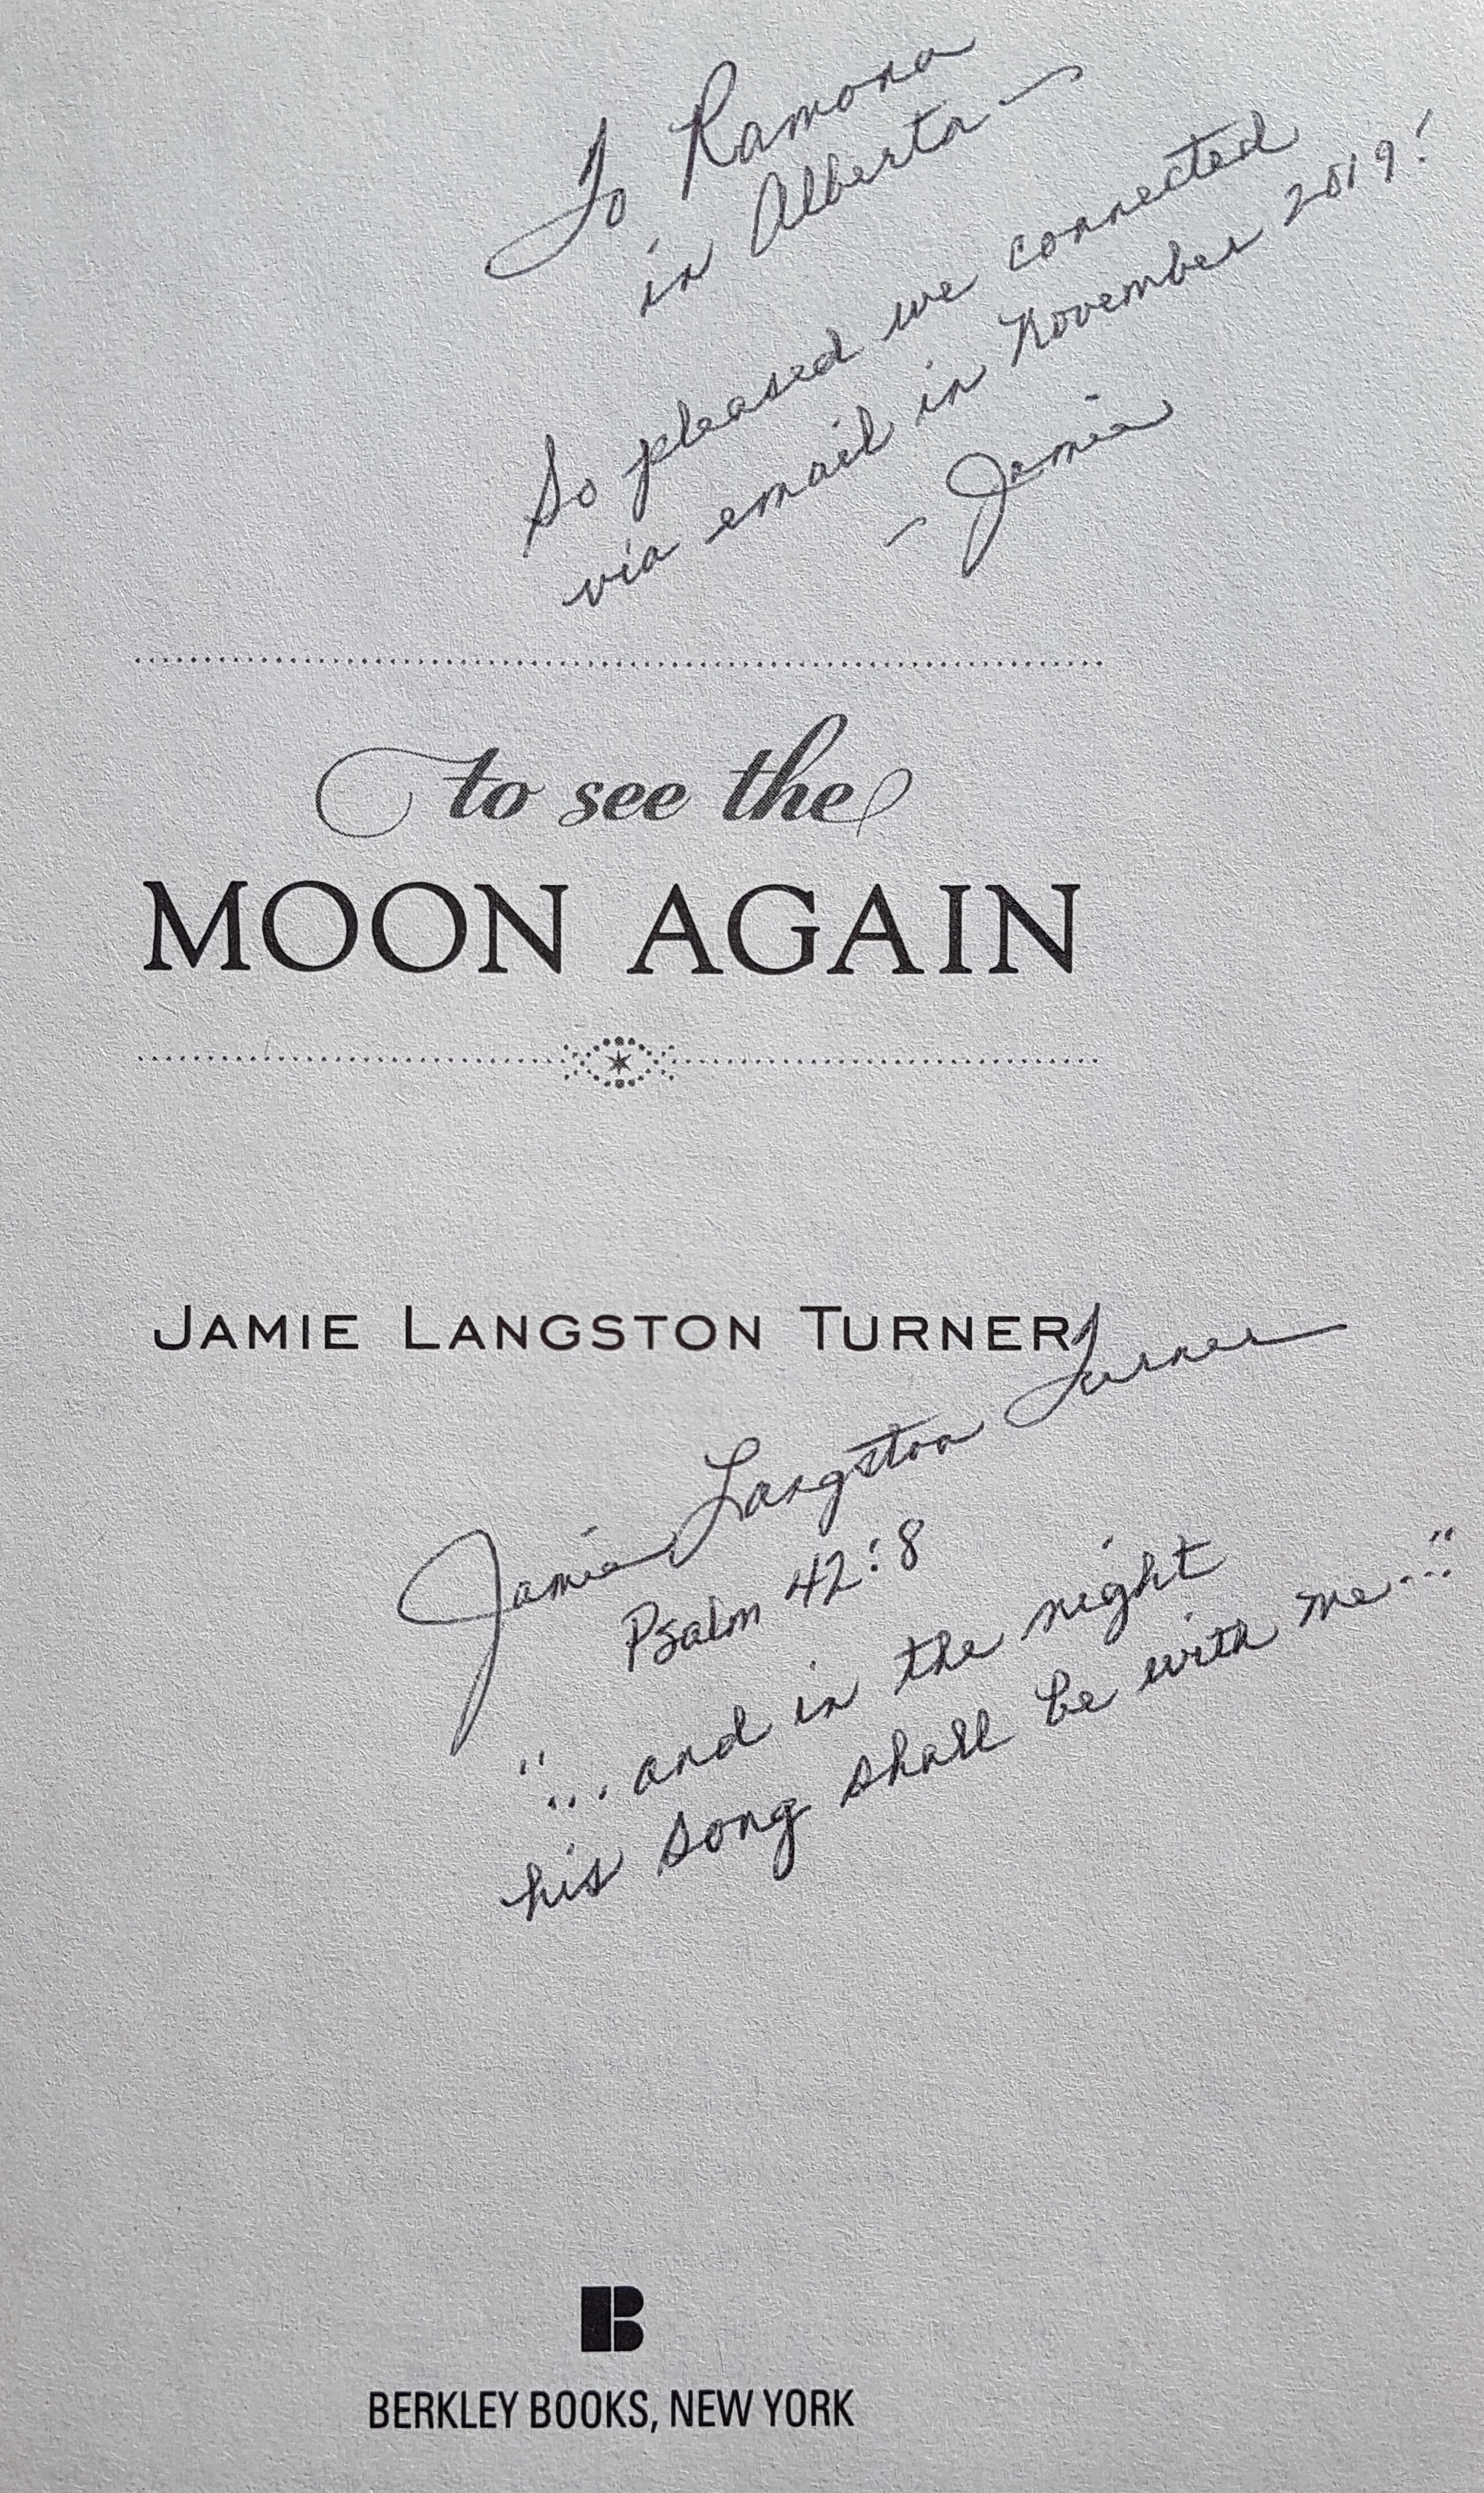 To Ramona
in Alberta –
So pleased we connected
via email in November 2019!
– Jamie
to see the
MOON AGAIN
JAMIE LANGSTON TURNER
Jamie Langston Turner
Psalm 42:8
"... and in the night
his song shall be with me..."
B
BERKLEY BOOKS, NEW YORK